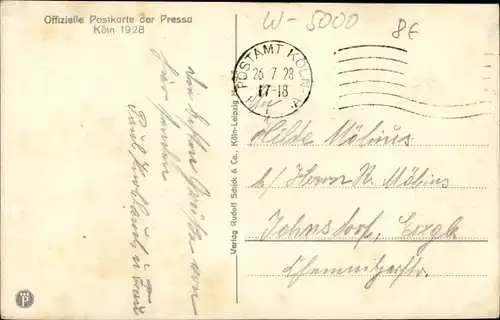 Offizielle Postkarte der Pressa
Köln 1928
W-5000
8€
POSTAMT KÖLN
26 7 28
17-18
Die besten Grüße von
hier senden
Paul u. Frau
Verlag Rudolf Schick & Co., Köln-Leipzig
Hilde Möbius
b/ Herrn R. Möbius
Jahnsdorf, Erzgb
Chemnitzerstr.